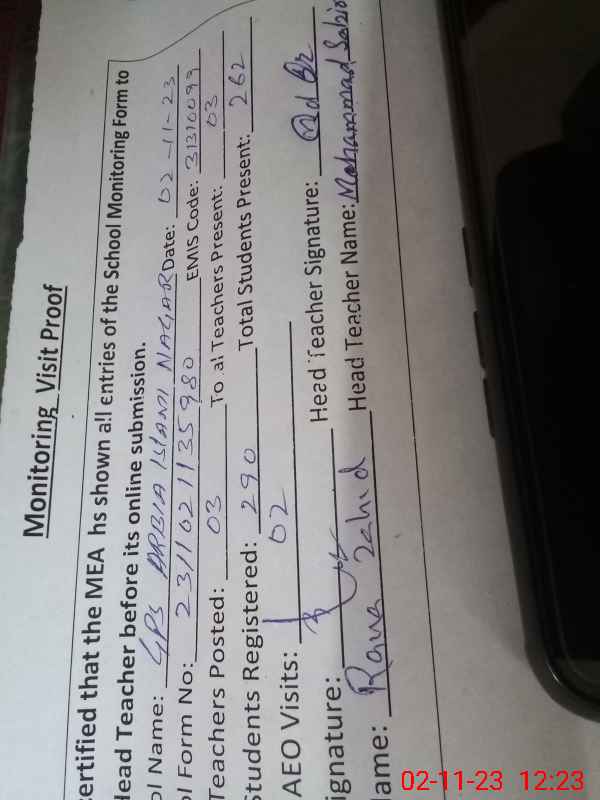 Monitoring Visit Proof
certified that the MEA hs shown all entries of the School Monitoring Form to
Head Teacher before its online submission.
ol Name: GPS ARBIA ISLAMI NAGAR Date: 02-11-23
ol Form No: 231102113598O EMIS Code: 31310099
Teachers Posted: 03 To al Teachers Present: 03
Students Registered: 290 Total Students Present: 262
AEO Visits: 02
ignature: Head Teacher Signature:
lame: Rana Zahid Head Teacher Name: Mohammad Sabir
02-11-23 12:23